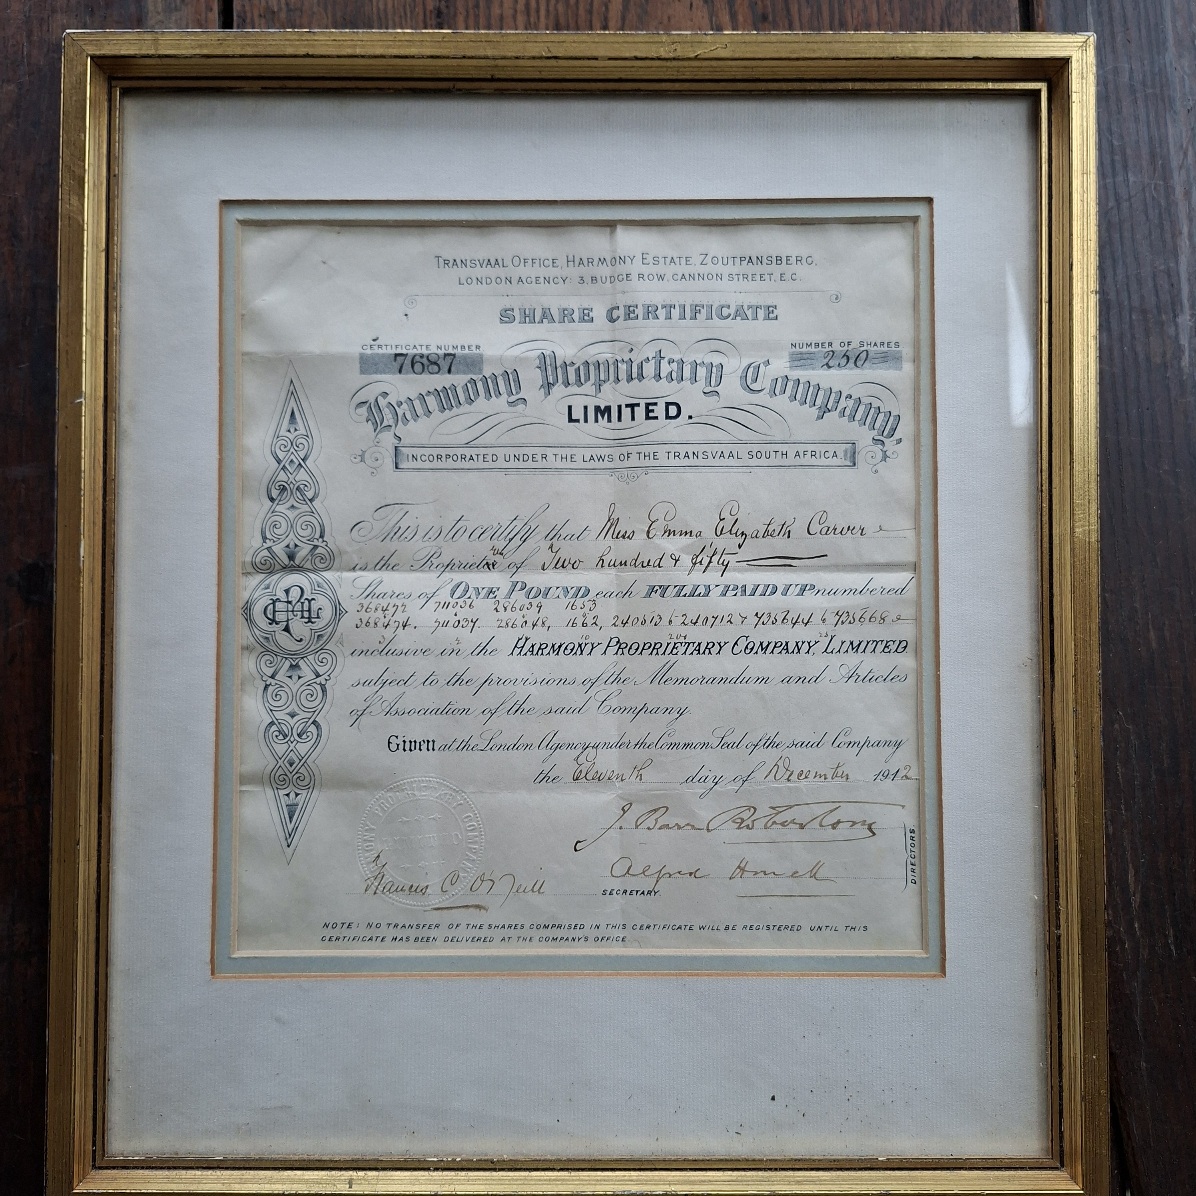 TRANSVAAL OFFICE, HARMONY ESTATE, ZOUTPANSBERG.
LONDON AGENCY: 3, BUDGE ROW, CANNON STREET, E.C.
SHARE CERTIFICATE
CERTIFICATE NUMBER
7687
NUMBER OF SHARES
250
Harmony Proprietary Company,
LIMITED.
INCORPORATED UNDER THE LAWS OF THE TRANSVAAL SOUTH AFRICA.
This is to certify that Miss Emma Elizabeth Carver
is the Proprietor of Two hundred & fifty
Shares of ONE POUND each FULLY PAID UP numbered
368472 711036 286039 1653
368474. 711037. 286048, 1662,
inclusive in the HARMONY PROPRIETARY COMPANY, LIMITED
subject to the provisions of the Memorandum and Articles
of Association of the said Company.
Given at the London Agency under the Common Seal of the said Company
the Eleventh day of December 1912
J. Barr Robertson
Alfred
DIRECTORS
Francis C. O'Neill
SECRETARY.
NOTE: NO TRANSFER OF THE SHARES COMPRISED IN THIS CERTIFICATE WILL BE REGISTERED UNTIL THIS
CERTIFICATE HAS BEEN DELIVERED AT THE COMPANY'S OFFICE